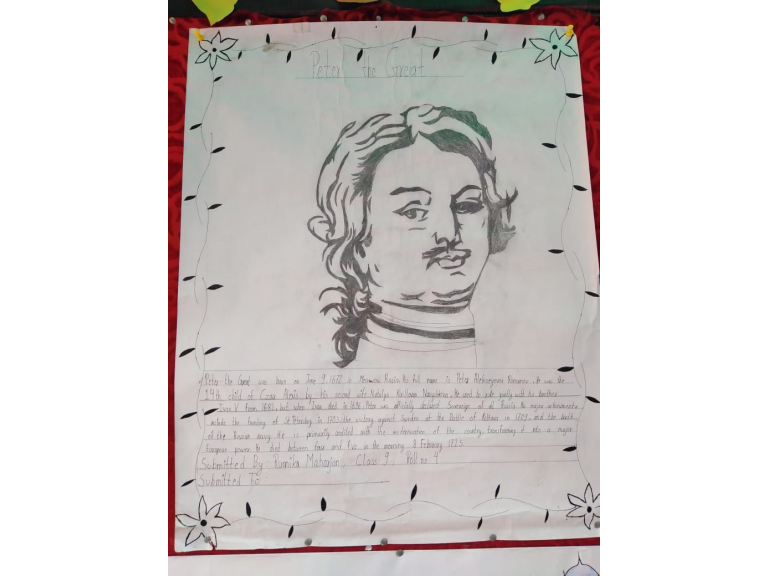 Peter the Great
Peter the Great was born on June 9, 1672 in Moscow, Russia. His full name is Peter Alekseyevna Romanov. He was the
14th child of Czar Alexis by his second wife Natalya Kirillovna Naryshkina. He used to rule jointly with his brother
Ivan V from 1682, but when Ivan died in 1696 Peter was officially declared Sovereign of all Russia. His major achievements
include the founding of St. Petersburg in 1703, the victory against Sweden at the Battle of Poltava in 1709, and the
of the Russian navy. He is primarily credited with the modernization of the country, transforming it into a major
European power. He died between four and five in the morning 8 February 1725.
Submitted By Rumika Maharjan, Class 9, Roll no 4
Submitted To